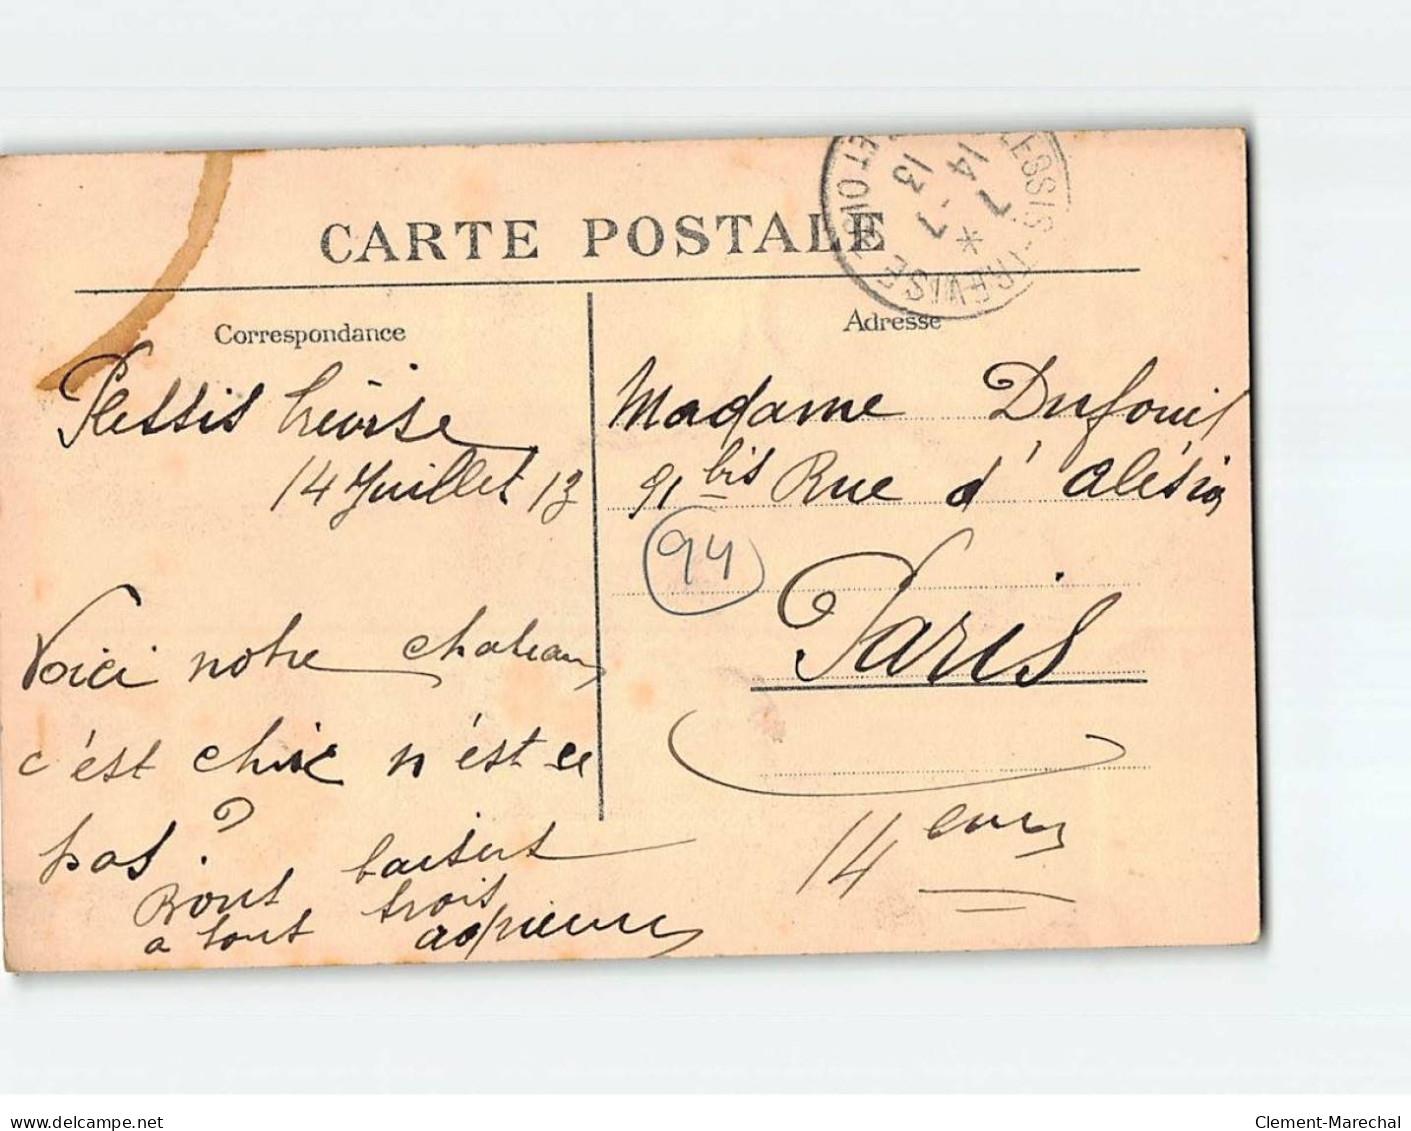 CARTE POSTALE
PLESSIS-TRÉVISE
ET OISE
14
7
13
-7
*
Correspondance
Adresse
Plessis Trévise
14 Juillet 13
Voici notre chateau
c'est chic n'est ce
pas ?
baisers
a tout trois
Madame Dufouil
91 bis Rue d'Alésia
94
Paris
14 eme
www.delcampe.net
Clement-Marechal